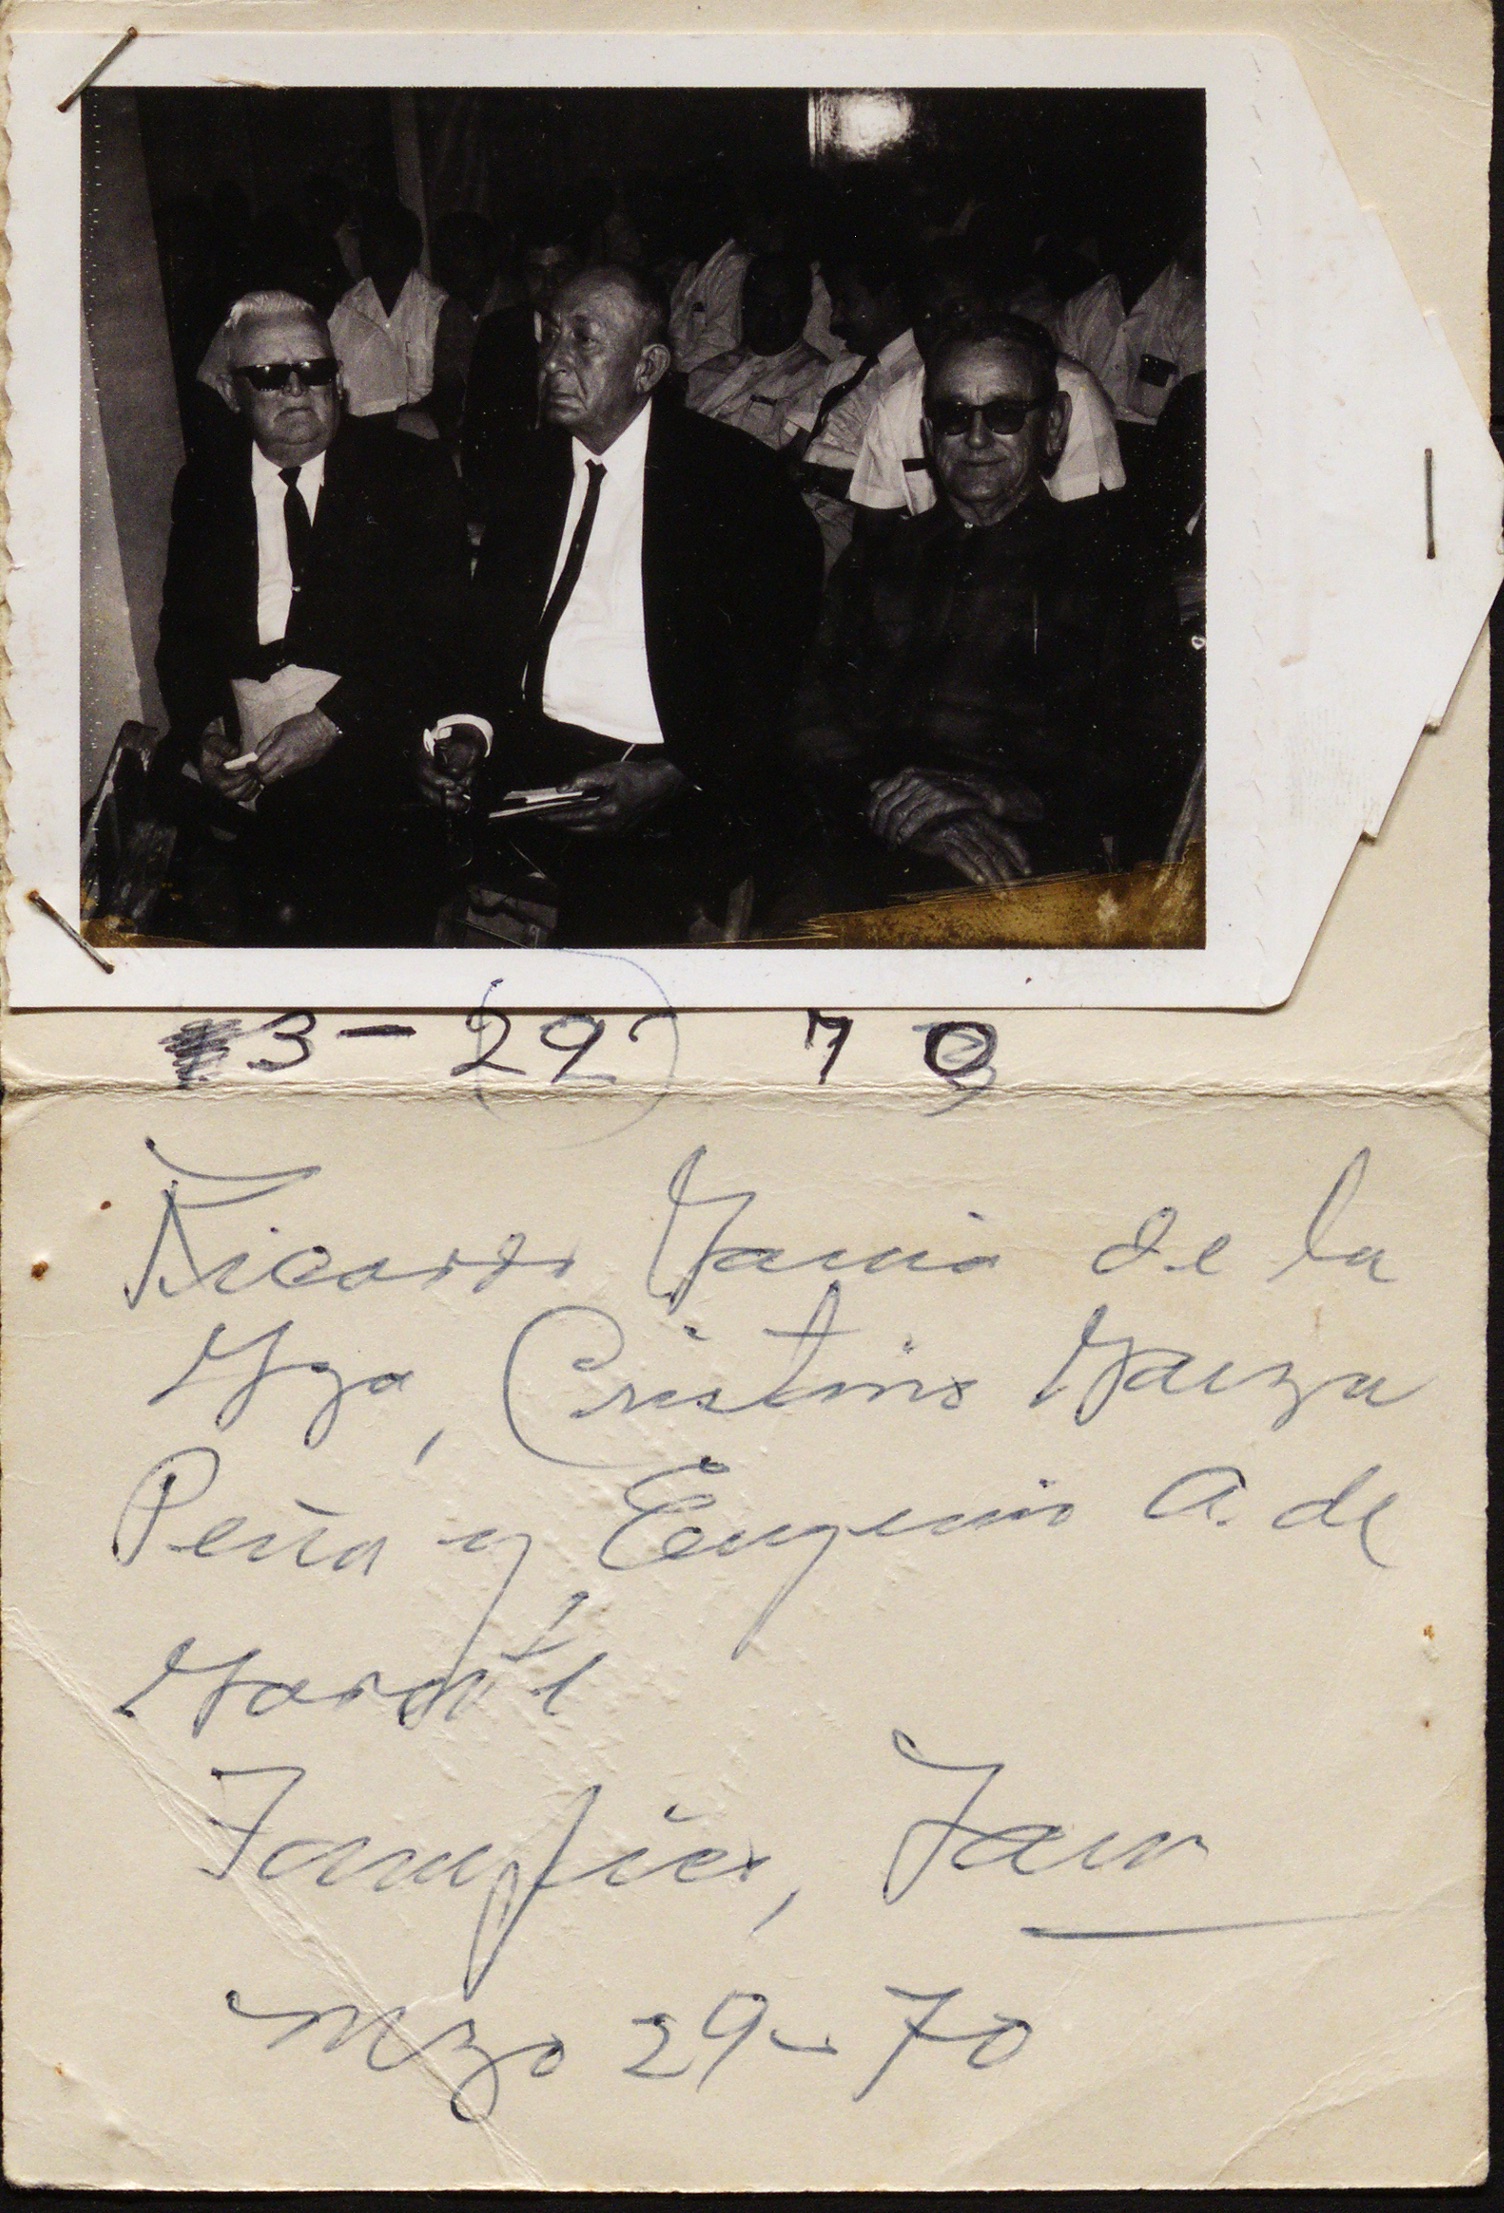 3-29 70
Ricardo Garcia de la
Gza, Cristino Garza
Peña y Eugenio A. de
Tampico, Tam
mzo 29-70